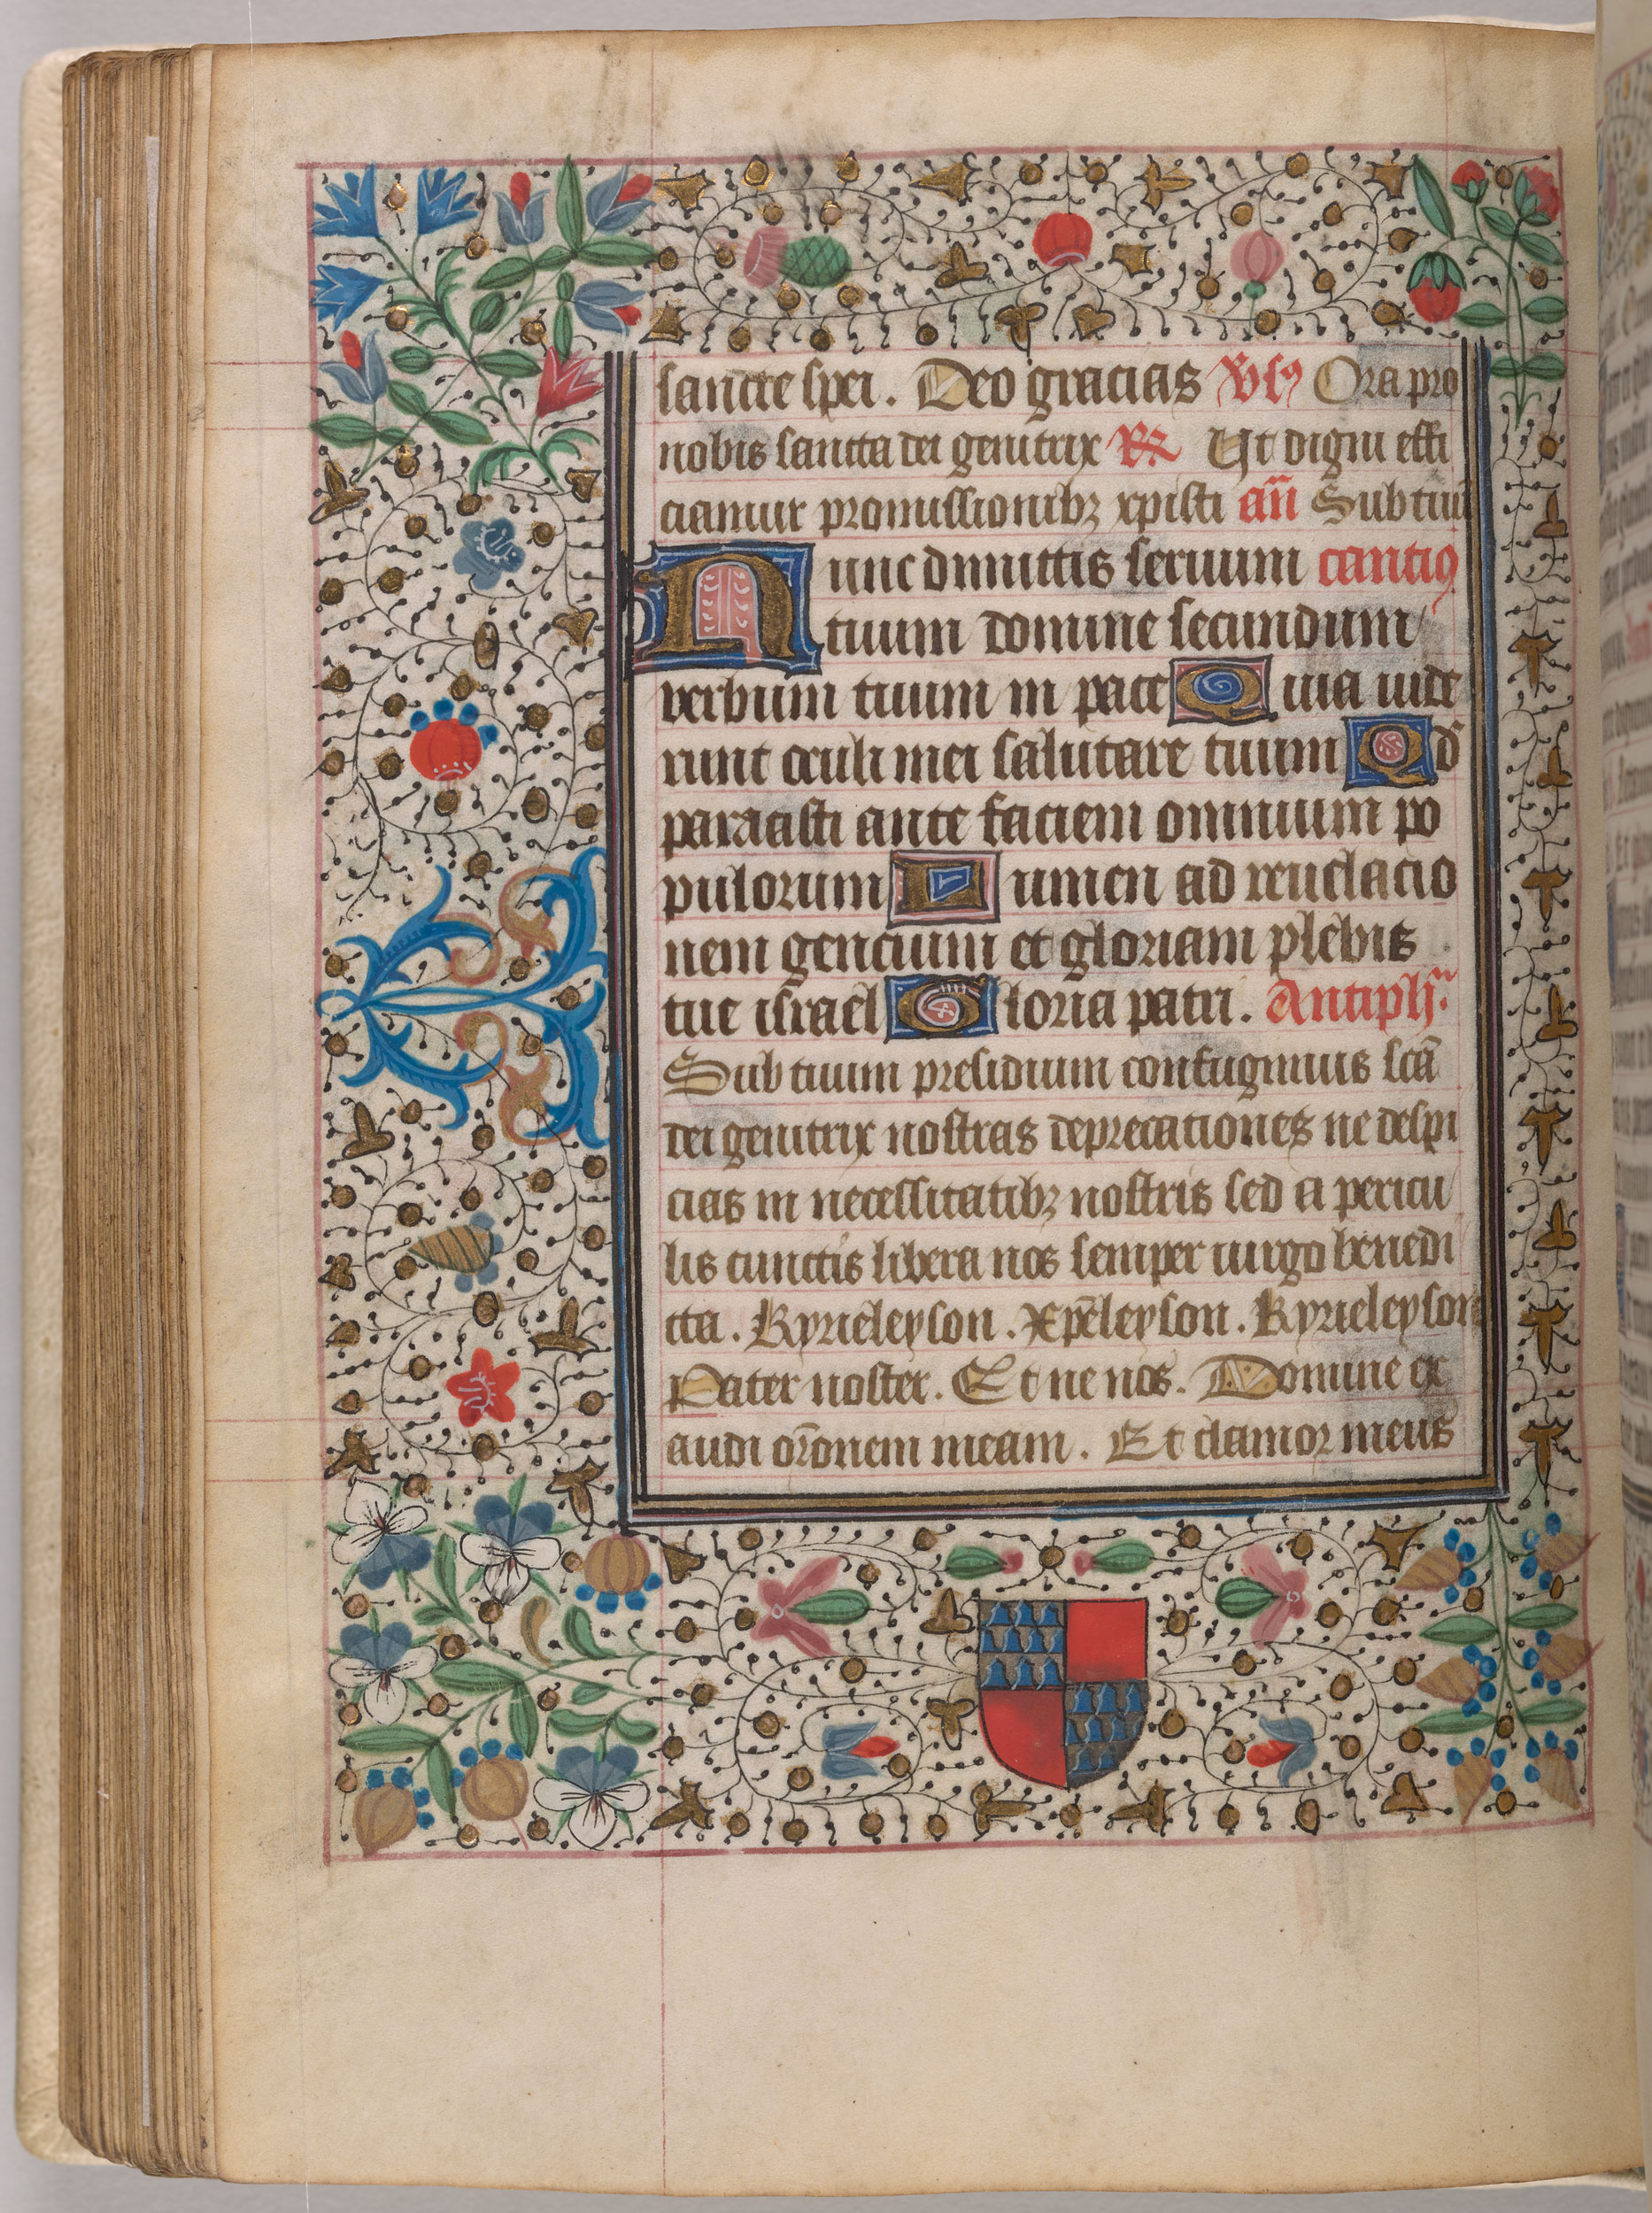 sancte spei. Deo gracias Vsꝰ Ora pro
nobis sancta dei genitrix R Ut digni effi
ciamur promissionibꝫ xpisti an̄ Sub tuū
Nunc dimittis seruum canticꝰ
tuum domine secundum
verbum tuum in pace Quia uide
runt oculi mei salutare tuum Qd̄
paraasti ante faciem omnium po
pulorum Lumen ad reuelacio
nem gencium et gloriam plebis
tue israel Gloria patri. Antiph̄.
Sub tuum presidium confugimus scā
dei genitrix nostras deprecationes ne despi
cias in necessitatibꝫ nostris sed a pericu
lis cunctis libera nos semper uirgo benedi
cta. Kyrieleyson. Xp̄eleyson. Kyrieleyson
Pater noster. Et ne nos. Domine ex
audi or̄onem meam. Et clamor meus